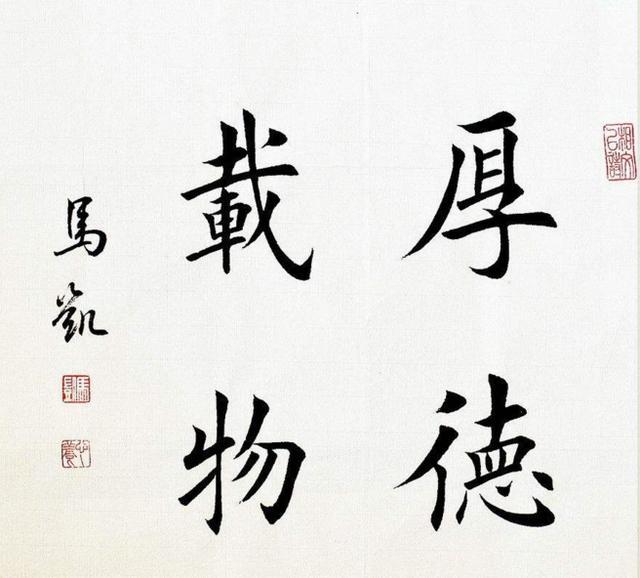 厚德
載物
馬凱